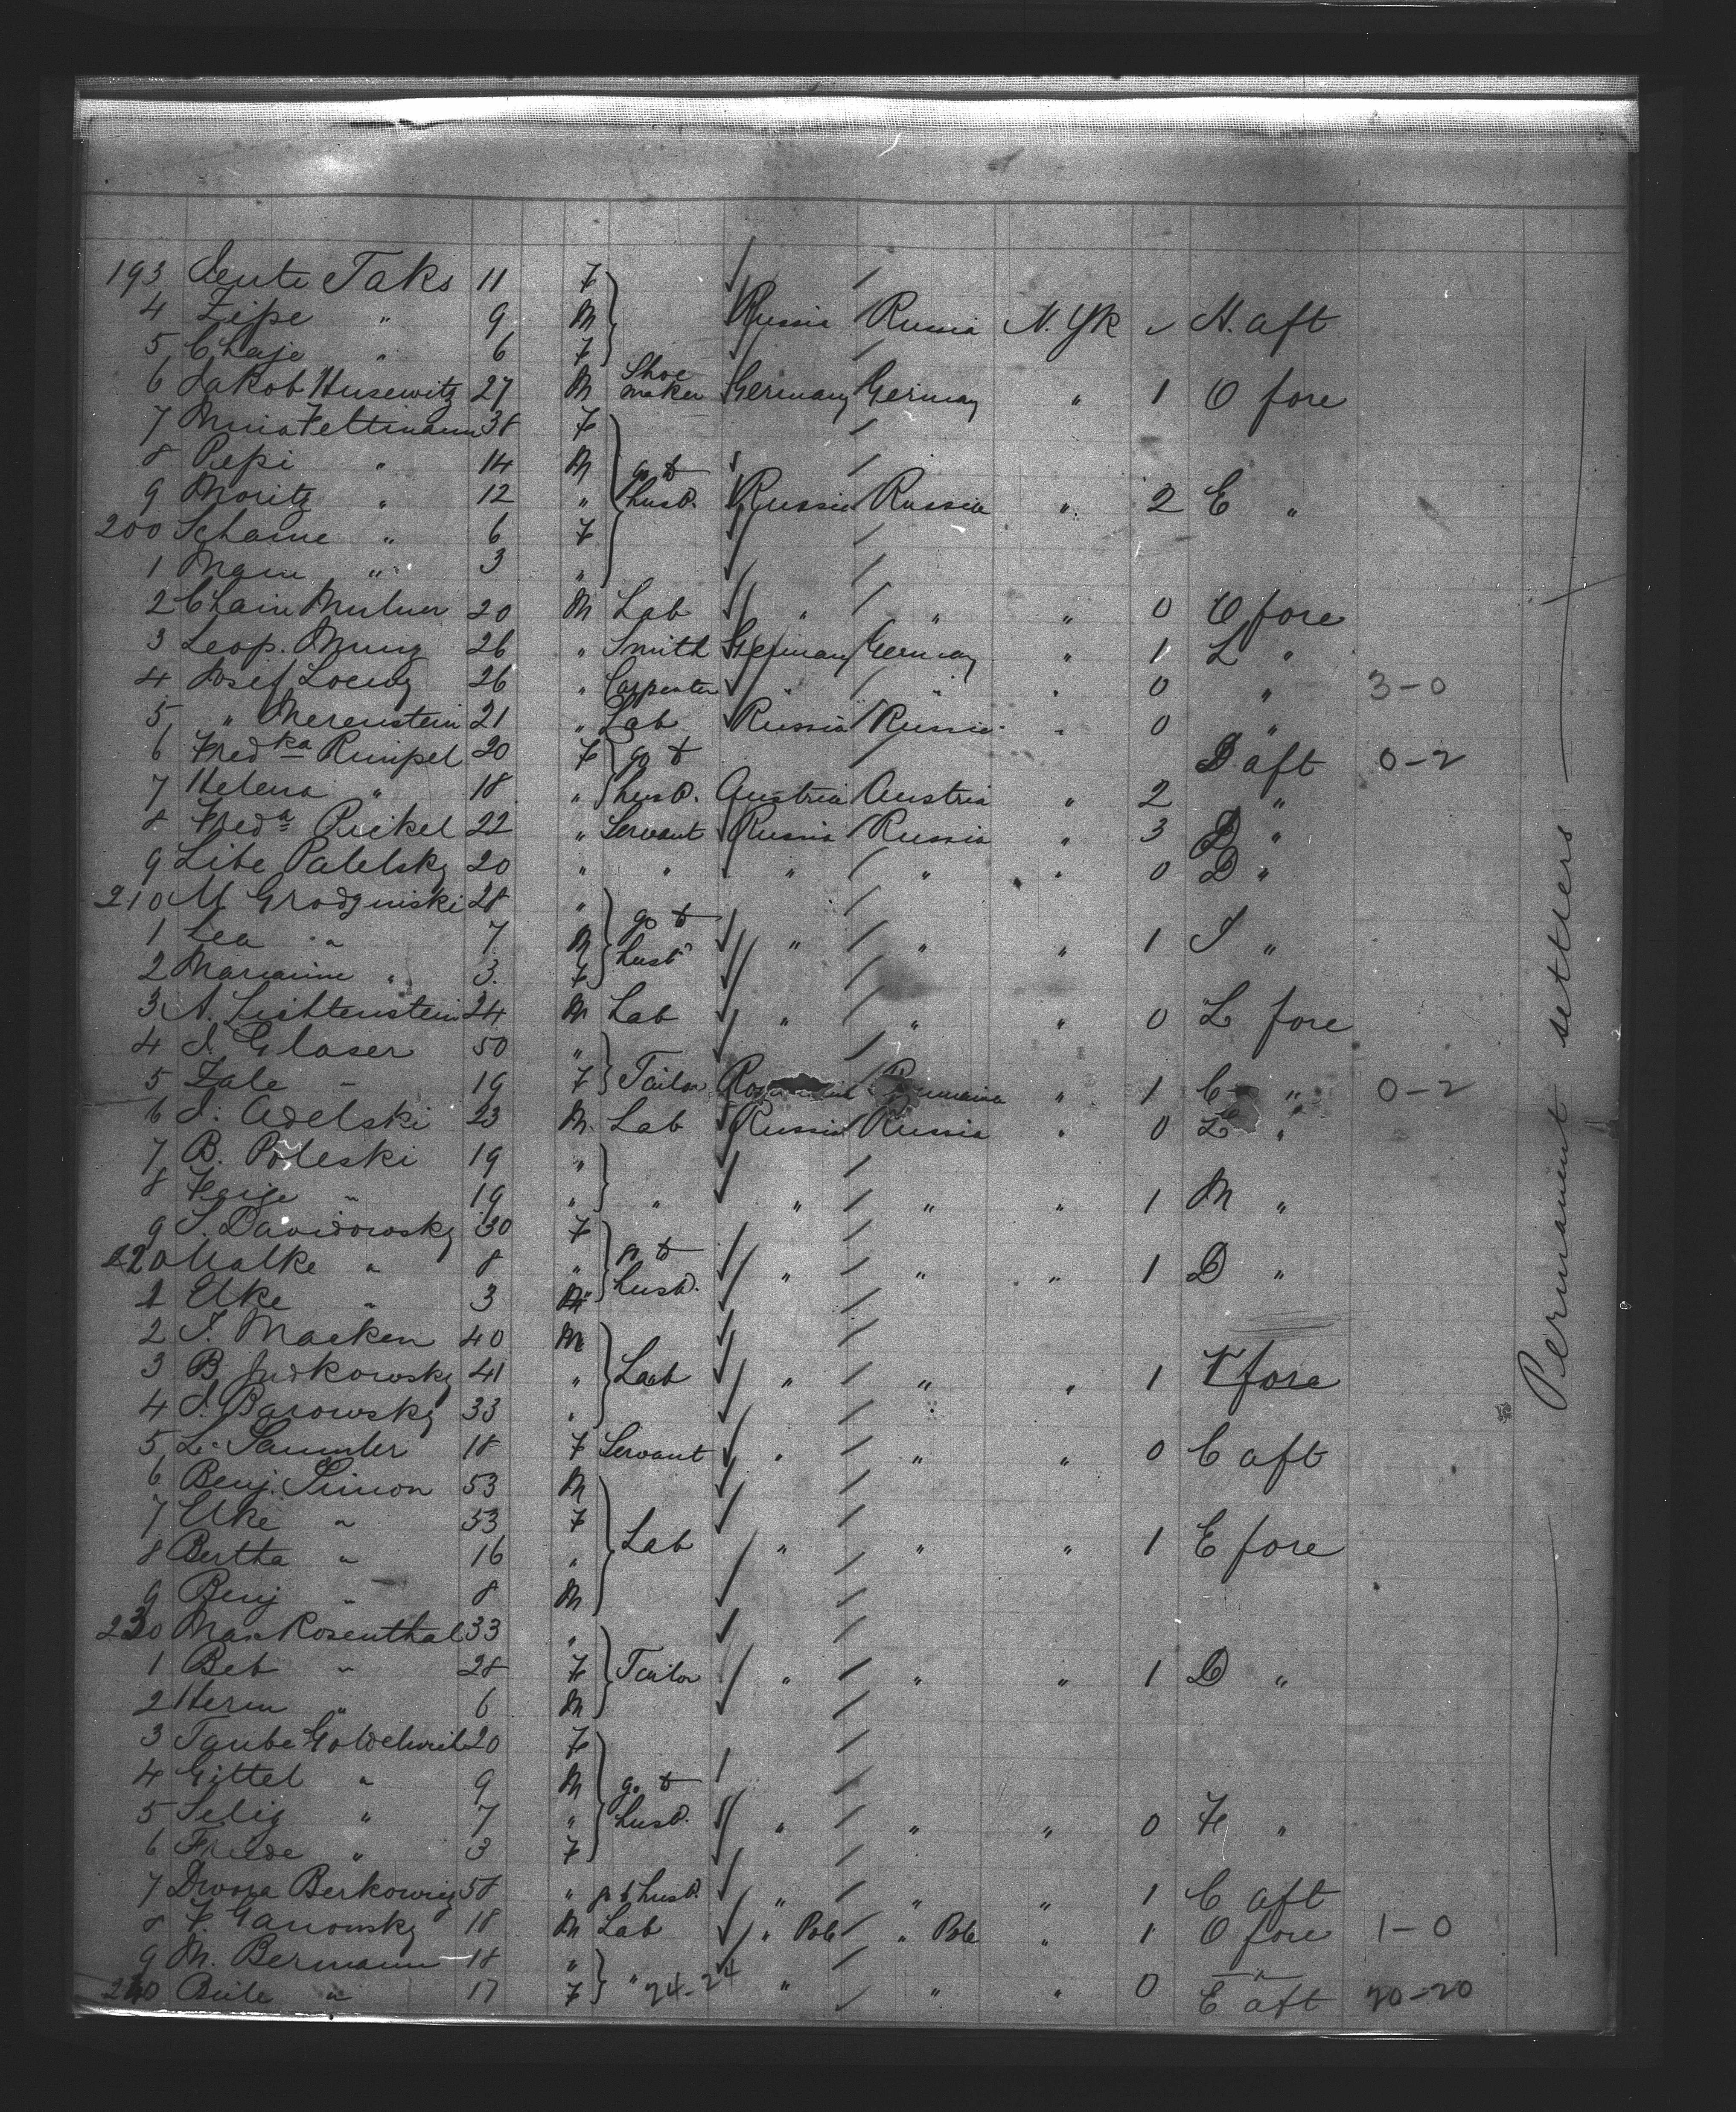 193 Dente Taks 11 F
4 Zipe " 9 M Russia Russia N. Yk ✓ H. aft
5 Chaje " 6 F
6 Jakob Husewitz 27 M Shoe maker Germany Germany " 1 O fore
7 Mina Feltmann 38 F
8 Pepi " 14 M go to
9 Moritz " 12 " husb. Russia Russia " 2 E "
200 Scheine " 6 F
1 " 3 "
2 Chain 20 M Lab " " " 0 O fore
3 Leop. 26 " Smith Germany Germany " 1 L "
4 Josef Loewy 26 " Carpenter " " " 0 " 3-0
5 " Merenstein 21 " Lab Russia Russia " 0 "
6 Fredka Rimpel 20 F go to D aft 0-2
7 Helena " 18 " husb. Austria Austria " 2 "
8 Freda Pickel 22 " Servant Russia Russia " 3 D "
9 Libe Palelsky 20 " " " " " 0 D "
210 M Grodzinski 28 " go to
1 Lea " 7 M husb " " " 1 I "
2 Mariann " 3 F
3 A. Lichtenstein 24 M Lab " " " 0 L fore
4 J. Glaser 50 "
5 Zale " 19 F Tailor Rumania " 1 C " 0-2
6 J. Adelski 23 M. Lab Russia Russia " 0 L "
7 B. Poleski 19 "
8 Feige " 19 " " " " " 1 M "
9 S. Davidowsky 30 F go to
220 Malke " 8 " husb. " " " 1 D "
1 Elke " 3
2 J. Macken 40 M
3 B Judkowsky 41 " Lab " " " 1 fore
4 J. Barowsky 33 "
5 L. Sammler 18 F Servant " " " 0 C aft
6 Benj. Simon 53 M
7 Elke " 53 F
8 Bertha " 16 " Lab " " " 1 E fore
9 Benj " 8 M
230 Max Rosenthal 33 "
1 Beb " 28 F Tailor " " " 1 D "
2 Herm " 6 M
3 Taube 20 F
4 Gittel " 9 M go to
5 Selig " 7 " husb. " " " 0 F "
6 Friede " 3 F
7 Dwora Berkowitz 58 " go t husb. " " " 1 C aft
8 F. Ganowsky 18 M Lab " Pole " Pole " 1 O fore 1-0
9 M. Bermann 18 " "
240 Beile " 17 F " 24-24 " " " 0 E aft 20-20
Permanent settlers